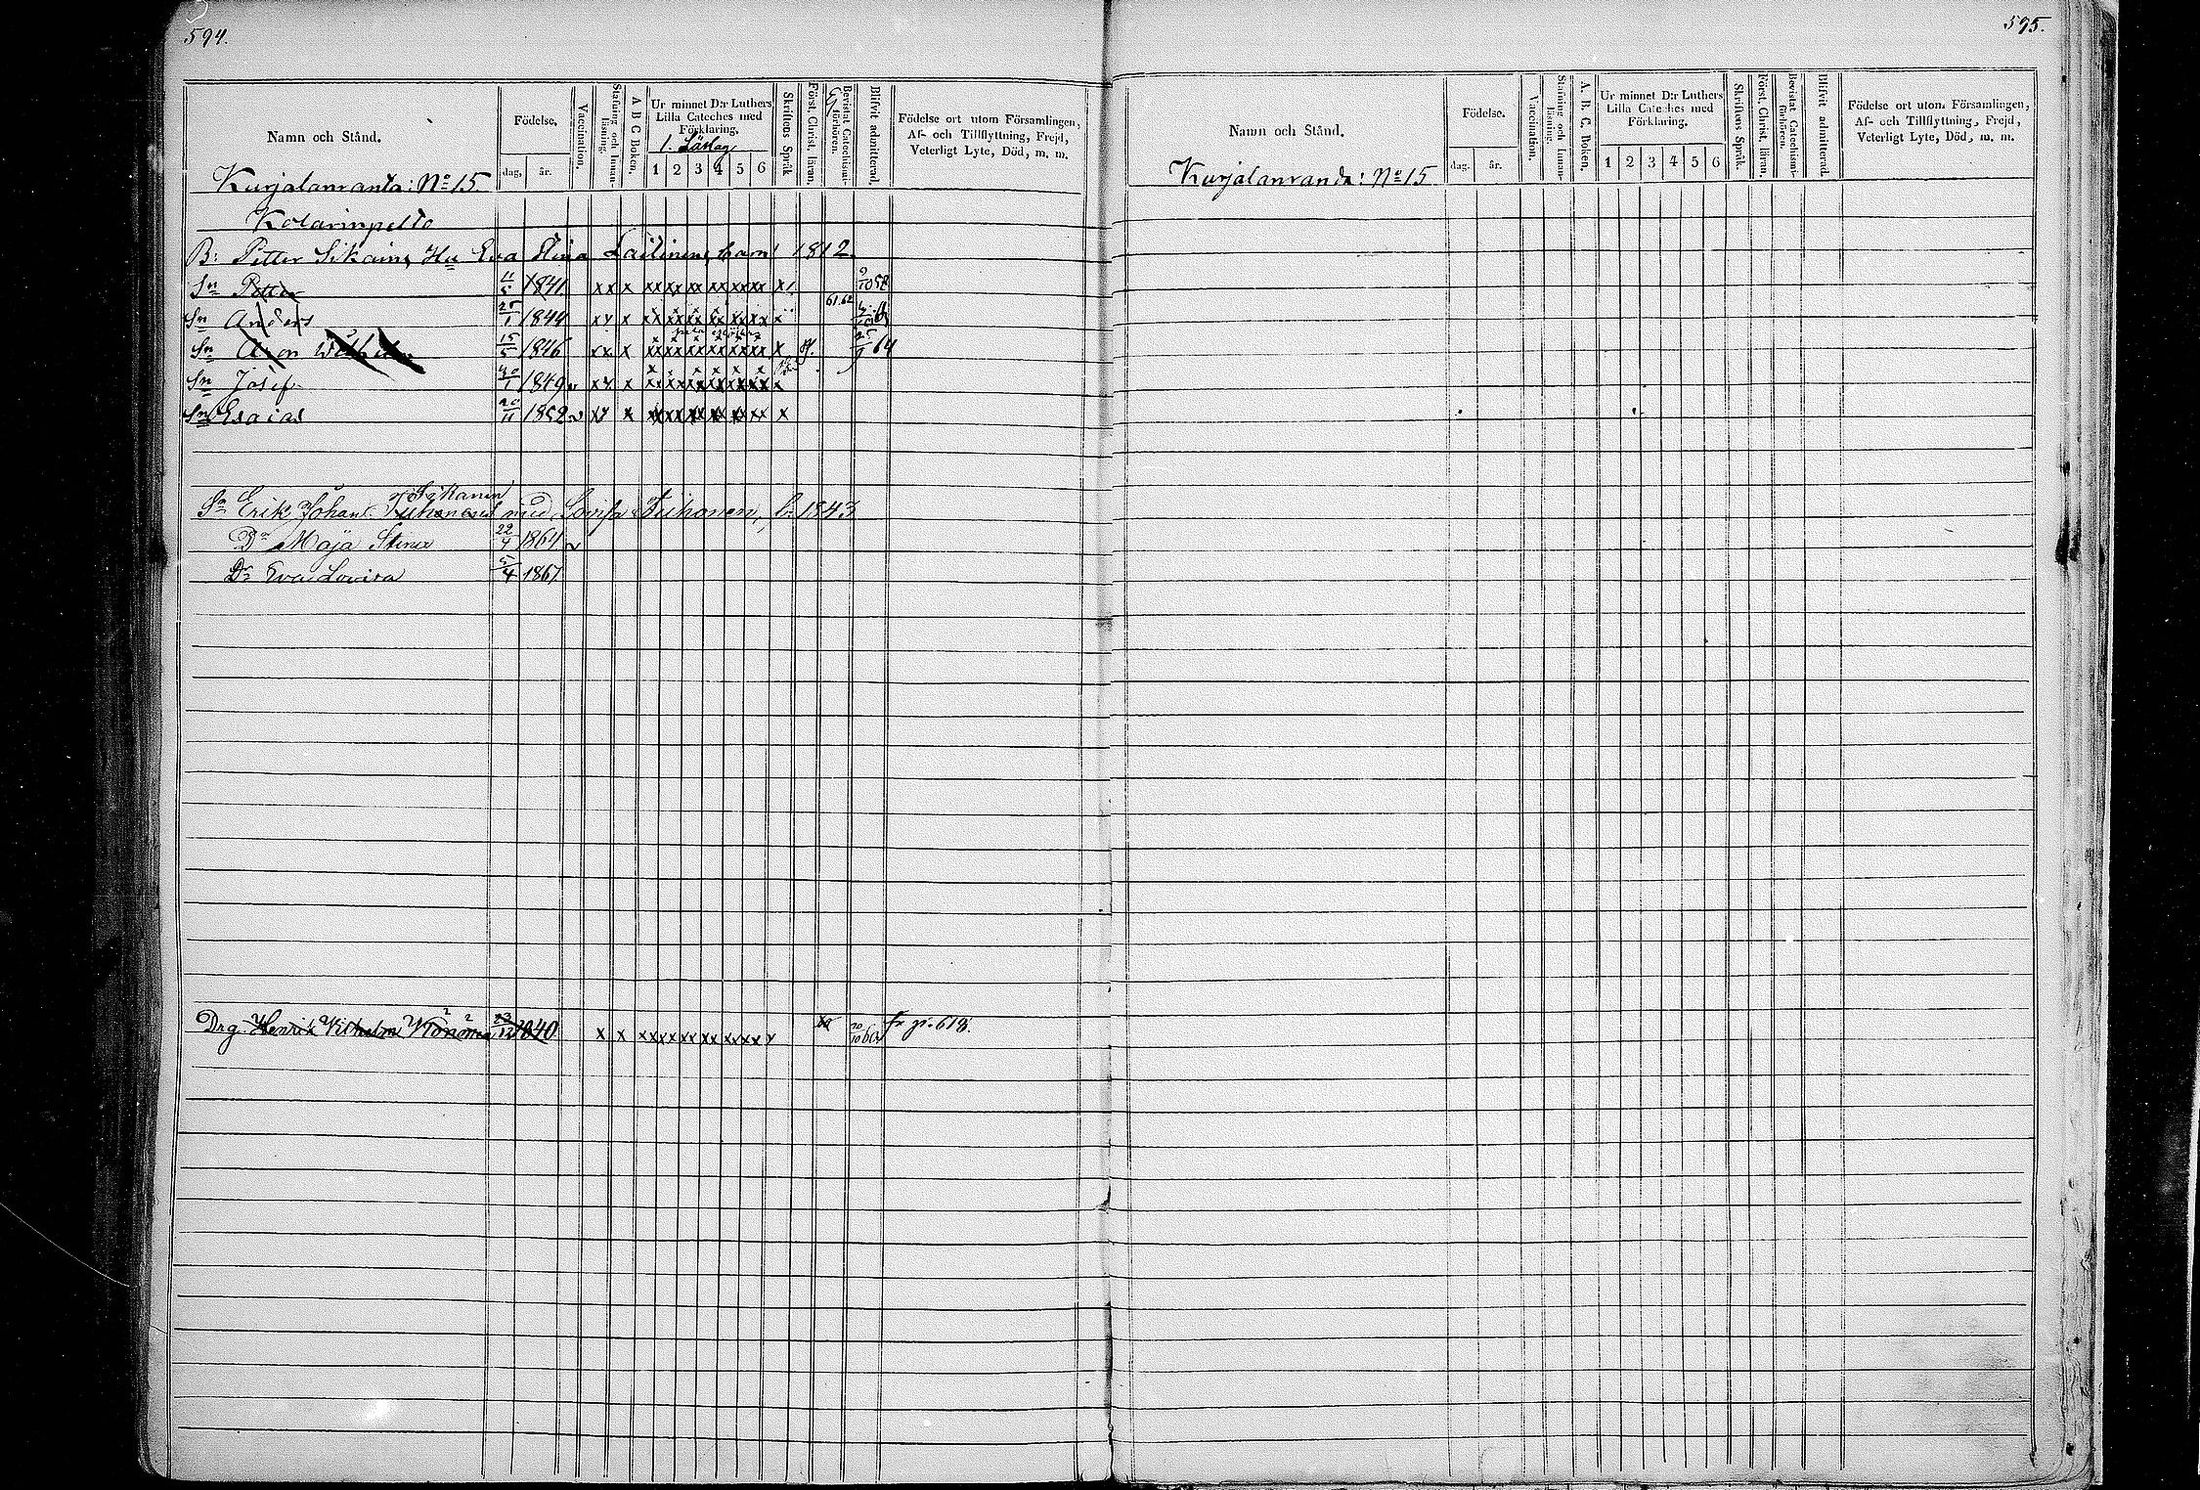 594.
Namn och Stånd.
Födelse.
dag. år.
Vaccination.
Stafning och Innanläsning.
A B C Boken.
Ur minnet D:r Luthers Lilla Cateches med Förklaring.
1. Läslag
1 2 3 4 5 6
Skriftens Språk
Först. Christ. läran.
Bevistat Catechismi-förhören.
Blifvit admitterad.
Födelse ort utom Församlingen, Af- och Tillflyttning, Frejd, Veterligt Lyte, Död, m. m.
Kurjalanranta: No 15.
Kolarinpelto
B: Petter Sikain, Hu Eva Stina Lailinens barn 1812
Sn Petter 11/5 1841 xx x xx xx xx xx xx xx x 9/10 58
Sn Anders 25/1 1844 xx x xx xx xx xx xx xx x 61.62
Sn Aron Wilhelm 15/5 1846 xx x xx xx xx xx xx xx x 64
Sn Josef 30/1 1849 v xx x xx xx xx xx xx xx x
Sn Esaias 20/11 1852 v xx x xx xx xx xx xx xx x
Sikanen
Sn Erik Johan med Lovisa Tiihonen, b. 1843
Dr Maja Stina 22/4 1864 v
Dr Eva Lovisa 5/4 1867
Drg Henrik Vilhelm 23/12 1840 x x xx xx xx xx xx xx 20/10 60 fr p. 618.
595.
Namn och Stånd.
Födelse.
dag. år.
Vaccination.
Stafning och Innanläsning.
A. B. C. Boken.
Ur minnet D:r Luthers Lilla Cateches med Förklaring.
1 2 3 4 5 6
Skriftens Språk.
Först. Christ. läran.
Bevistat Catechismi-förhören.
Blifvit admitterad.
Födelse ort utom Församlingen, Af- och Tillflyttning, Frejd, Veterligt Lyte, Död, m. m.
Kurjalanranda: No 15